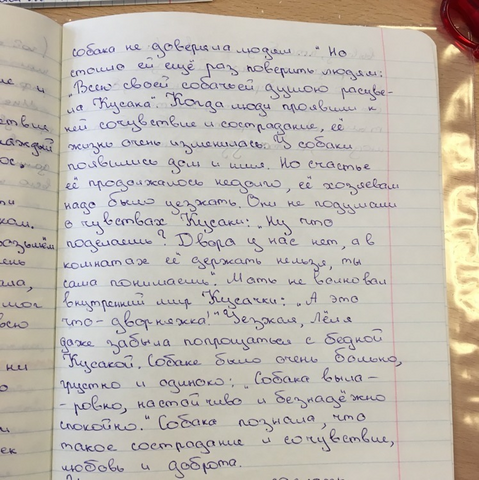 собака не доверяла людям..." Но
стоило ей ещё раз поверить людям:
"Всею своей собачьей душою расцве-
ла Кусака". Когда люди проявили к
ней сочувствие и сострадание, её
жизнь очень изменилась. У собаки
появились дом и имя. Но счастье
её продолжалось недолго, её хозяевам
надо было уезжать. Они не подумали
о чувствах Кусаки: "Ну что
поделаешь? Двора у нас нет, а в
комнатах её держать нельзя, ты
сама понимаешь". Мать не волновал
внутренний мир Кусачки: "А это
что - дворняжка!" Уезжая, Лёля
даже забыла попрощаться с бедной
Кусакой. Собаке было очень больно,
грустно и одиноко: "Собака выла -
- ровно, настойчиво и безнадёжно
спокойно." Собака познала, что
такое сострадание и сочувствие,
любовь и доброта.